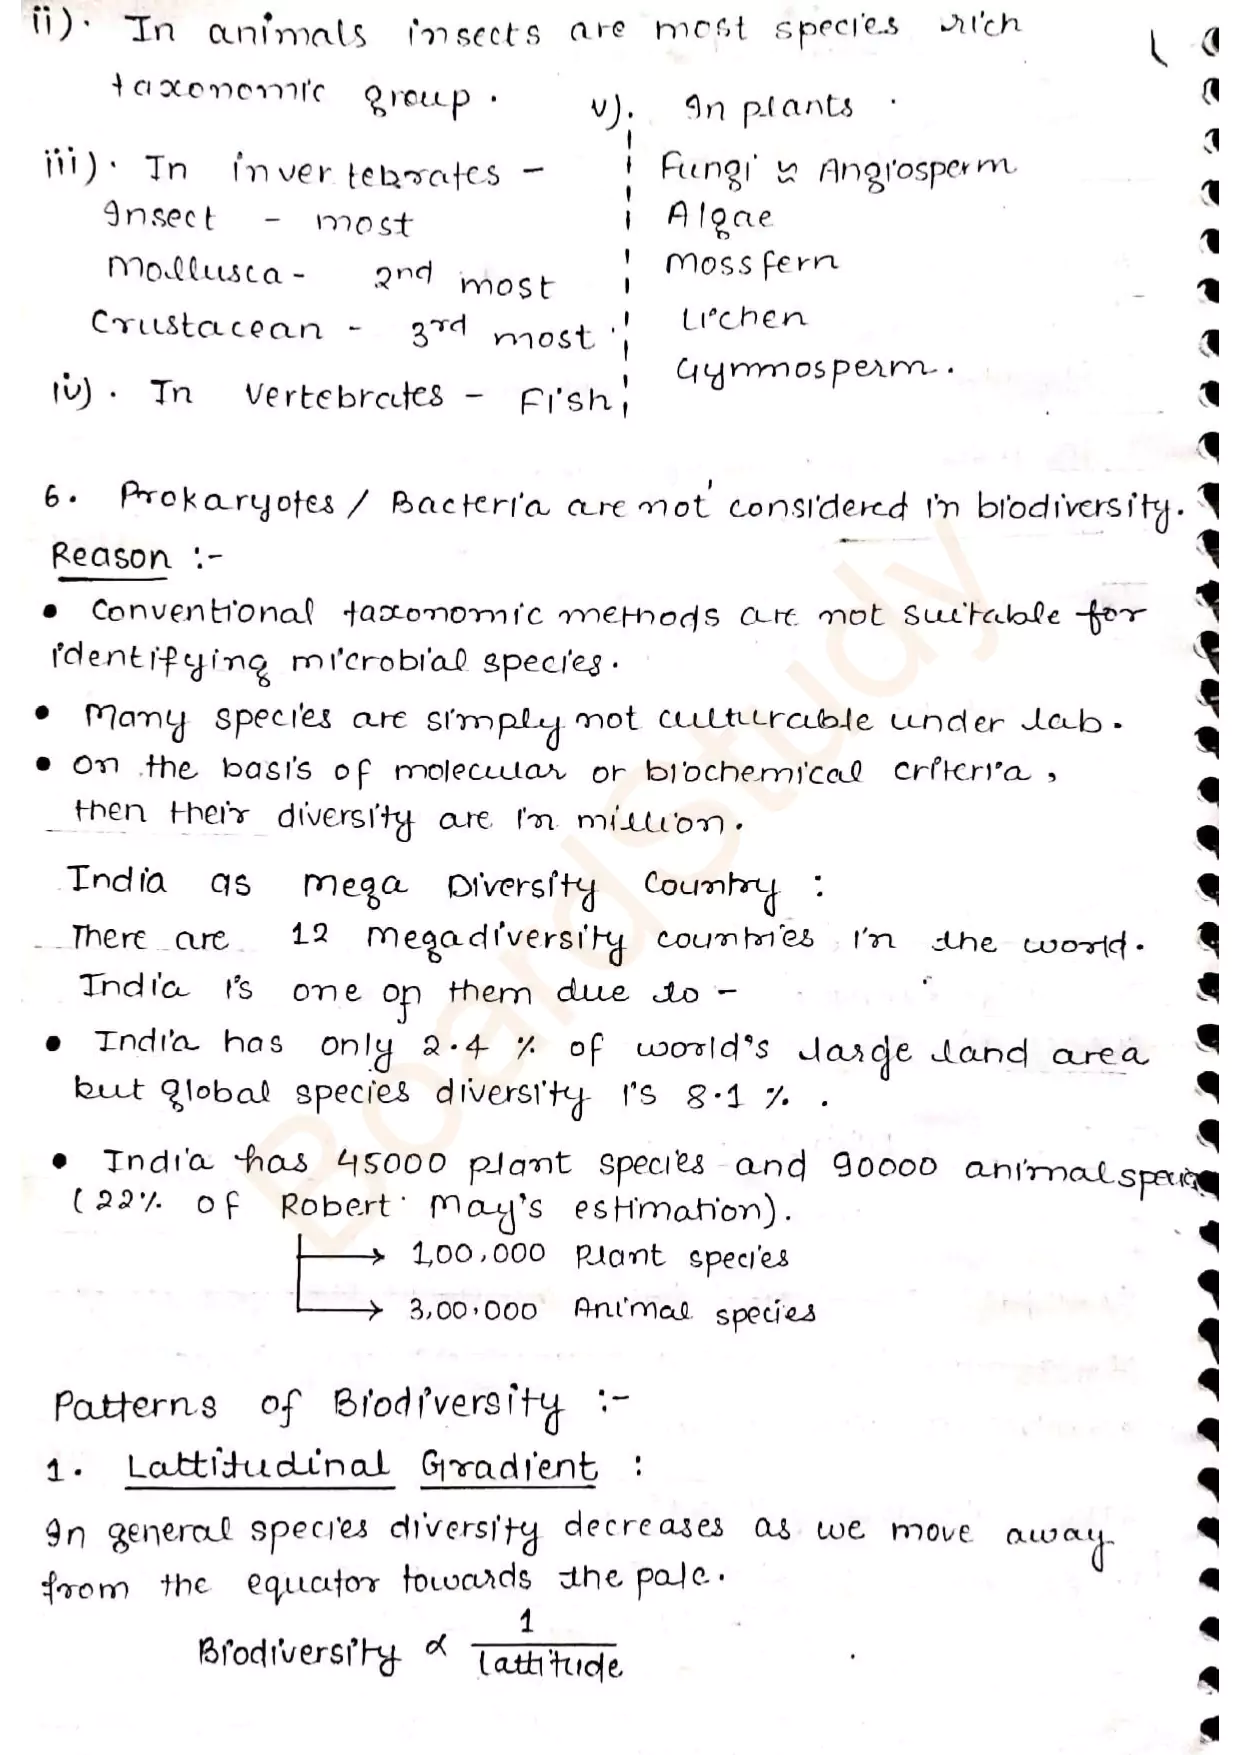 ii). In animals insects are most species rich
taxonomic group.
iii). In invertebrates -
Insect - most
Mollusca - 2nd most
Crustacean - 3rd most.
iv). In vertebrates - Fish
v). In plants.
Fungi > Angiosperm
Algae
Moss fern
Lichen
Gymnosperm.
6. Prokaryotes / Bacteria are not considered in biodiversity.
Reason :-
• Conventional taxonomic methods are not suitable for
identifying microbial species.
• Many species are simply not culturable under lab.
• On the basis of molecular or biochemical criteria,
then their diversity are in million.
India as Mega Diversity Country :
There are 12 megadiversity countries in the world.
India is one of them due to -
• India has only 2.4 % of world's large land area
but global species diversity is 8.1 %.
• India has 45000 plant species and 90000 animal species
(22% of Robert May's estimation).
→ 1,00,000 Plant species
→ 3,00,000 Animal species
Patterns of Biodiversity :-
1. Lattitudinal Gradient :
In general species diversity decreases as we move away
from the equator towards the pole.
Biodiversity ∝ 1/lattitude
BoardStudy